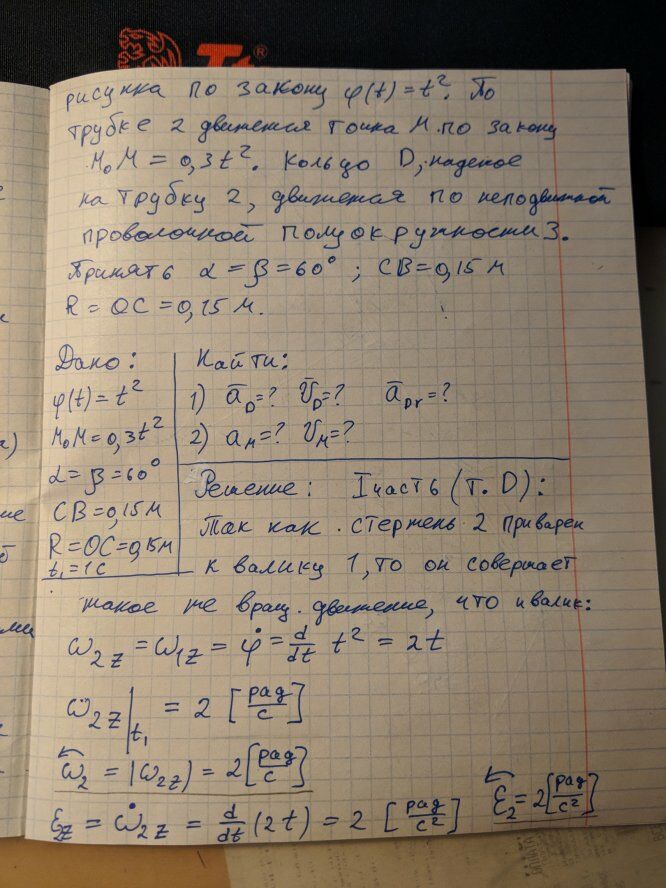 рисунка по закону φ(t) = t². По
трубке 2 движется точка М по закону
М₀М = 0,3t². Кольцо D, надетое
на трубку 2, движется по неподвижной
проволочной полуокружности 3.
Принять α = β = 60°; CB = 0,15 м
R = OC = 0,15 м.
Дано:
φ(t) = t²
М₀М = 0,3t²
α = β = 60°
CB = 0,15 м
R = OC = 0,15 м
t₁ = 1 с
Найти:
1) a̅_D = ? V̅_D = ? a̅_Dr = ?
2) a_M = ? V̅_M = ?
Решение: I часть (т. D):
Так как стержень 2 приварен
к валику 1, то он совершает
такое же вращ. движение, что и валик:
ω_2z = ω_1z = φ̇ = d/dt t² = 2t
ω_2z|t₁ = 2 [рад/с]
ω₂ = |ω_2z| = 2 [рад/с]
ε_2z = ω̇_2z = d/dt (2t) = 2 [рад/с²] ε₂ = 2 [рад/с²]